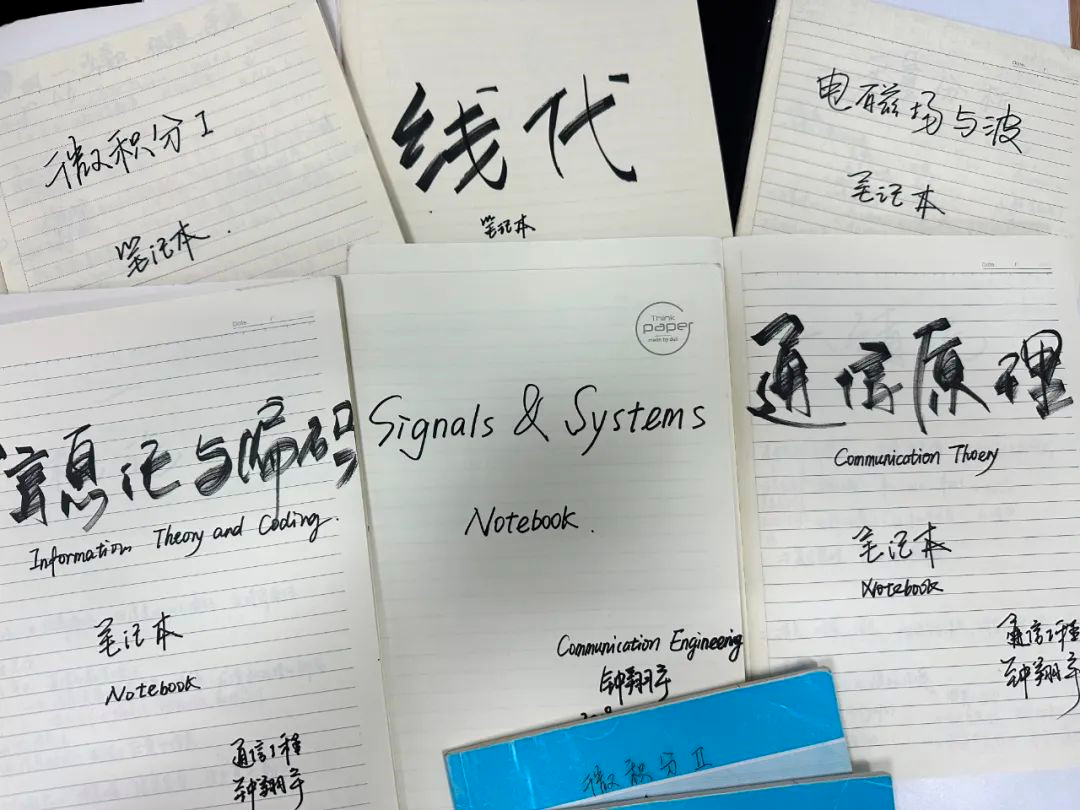 微积分I
笔记本.
线代
笔记本
Date
电磁场与波
笔记本
Date
信息论与编码
Information Theory and Coding.
笔记本
Notebook
通信工程
钟翔宇
Think
paper
made by dui
Signals & Systems
Notebook.
Communication Engineering
钟翔宇
Date
通信原理
Communication Thoery
笔记本
Notebook
通信工程
钟翔宇
微积分II